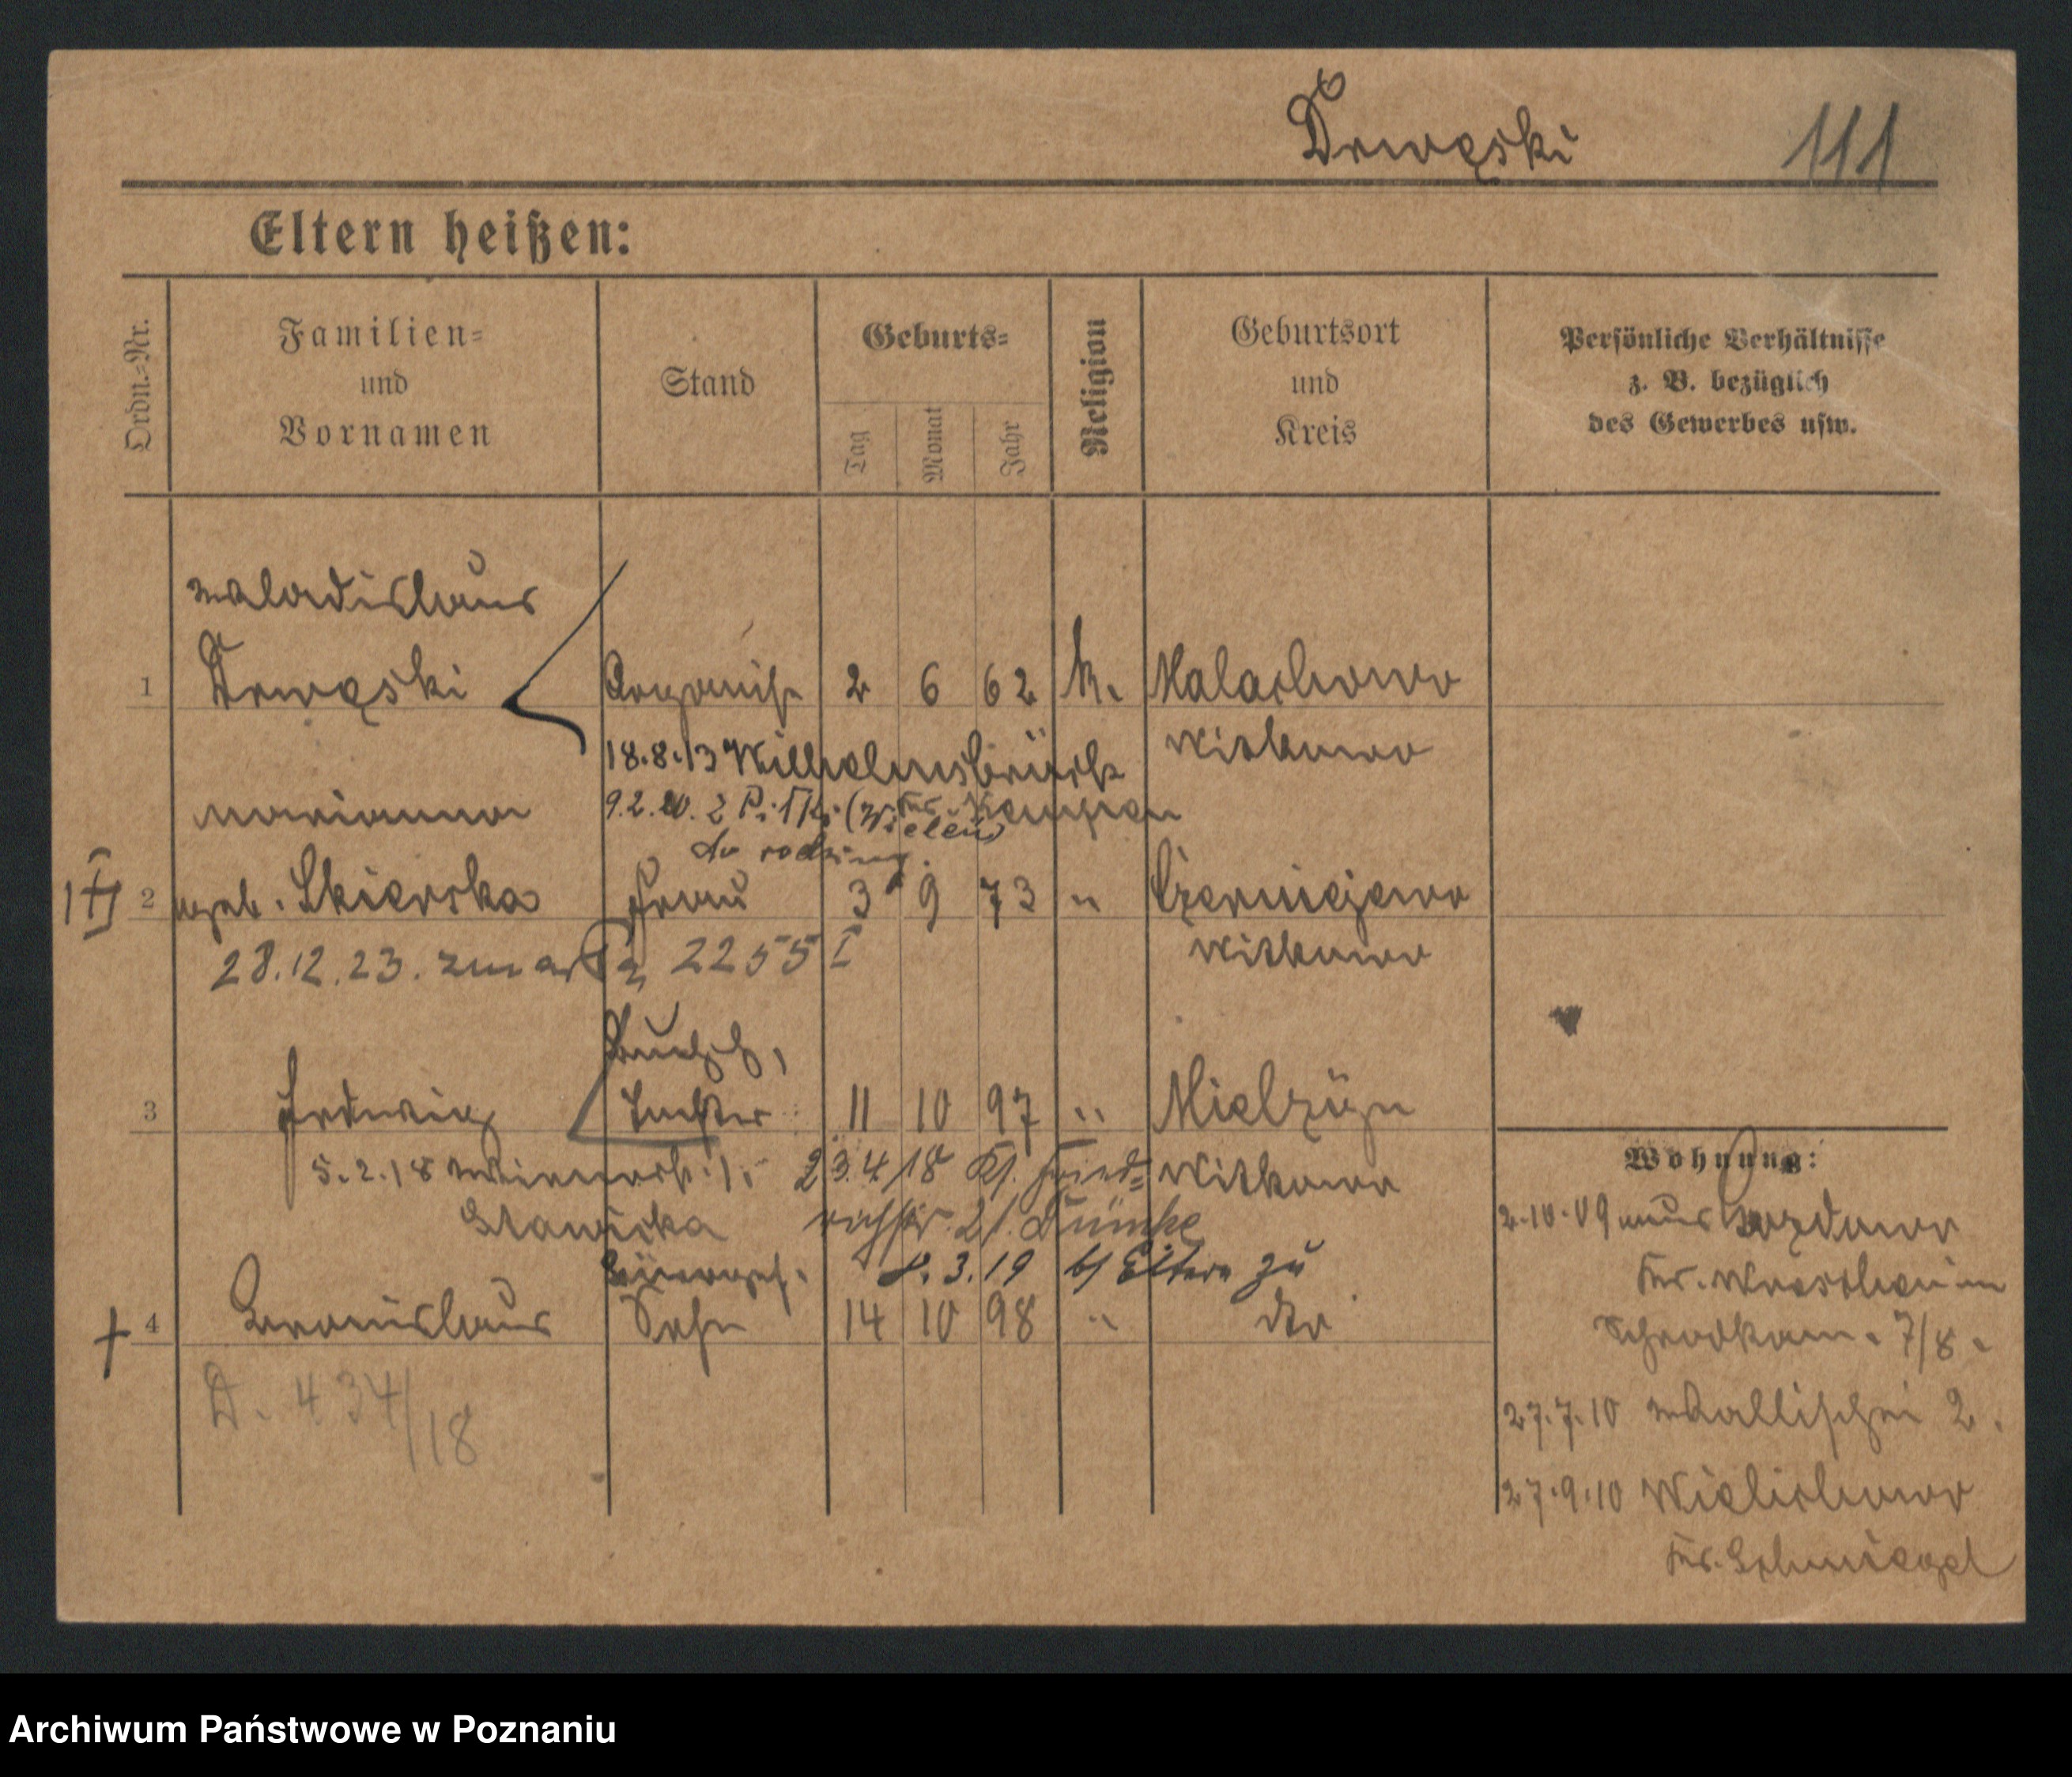 Drwęski 111
Eltern heißen:
Ordn.-Nr.
Familien=
und
Vornamen
Stand
Geburts=
Tag
Monat
Jahr
Religion
Geburtsort
und
Kreis
Persönliche Verhältnisse
z. B. bezüglich
des Gewerbes usw.
Wladislaus
1 Drwęski Organist 2 6 62 k. Malachowo
Witkowo
18.8.13 Wilhelmsbrück
Kr. Kempen
Marianna
9.2.20. (Wieleń)
do rodziny.
2 geb. Skierska Frau 3 9 73 " Czerniejewo
Witkowo
28.12.23. zmarła 2255 I
Buchh,
3 Hedwig Tochter 11 10 97 " Mielzyn
Witkowo
5.2.18 23.4/18 Kl.
Stawicka
8.3.19 b/ Eltern zu
4 Bronislaus Sohn 14 10 98 " dto
A. 434/18
Wohnung:
2.10.09 aus
Kr. Wreschen in
Schrodkam. 7/8.
27.7.10 Wallischei 2.
27.9.10 Wielichowo
Kr. Schmiegel
Archiwum Państwowe w Poznaniu